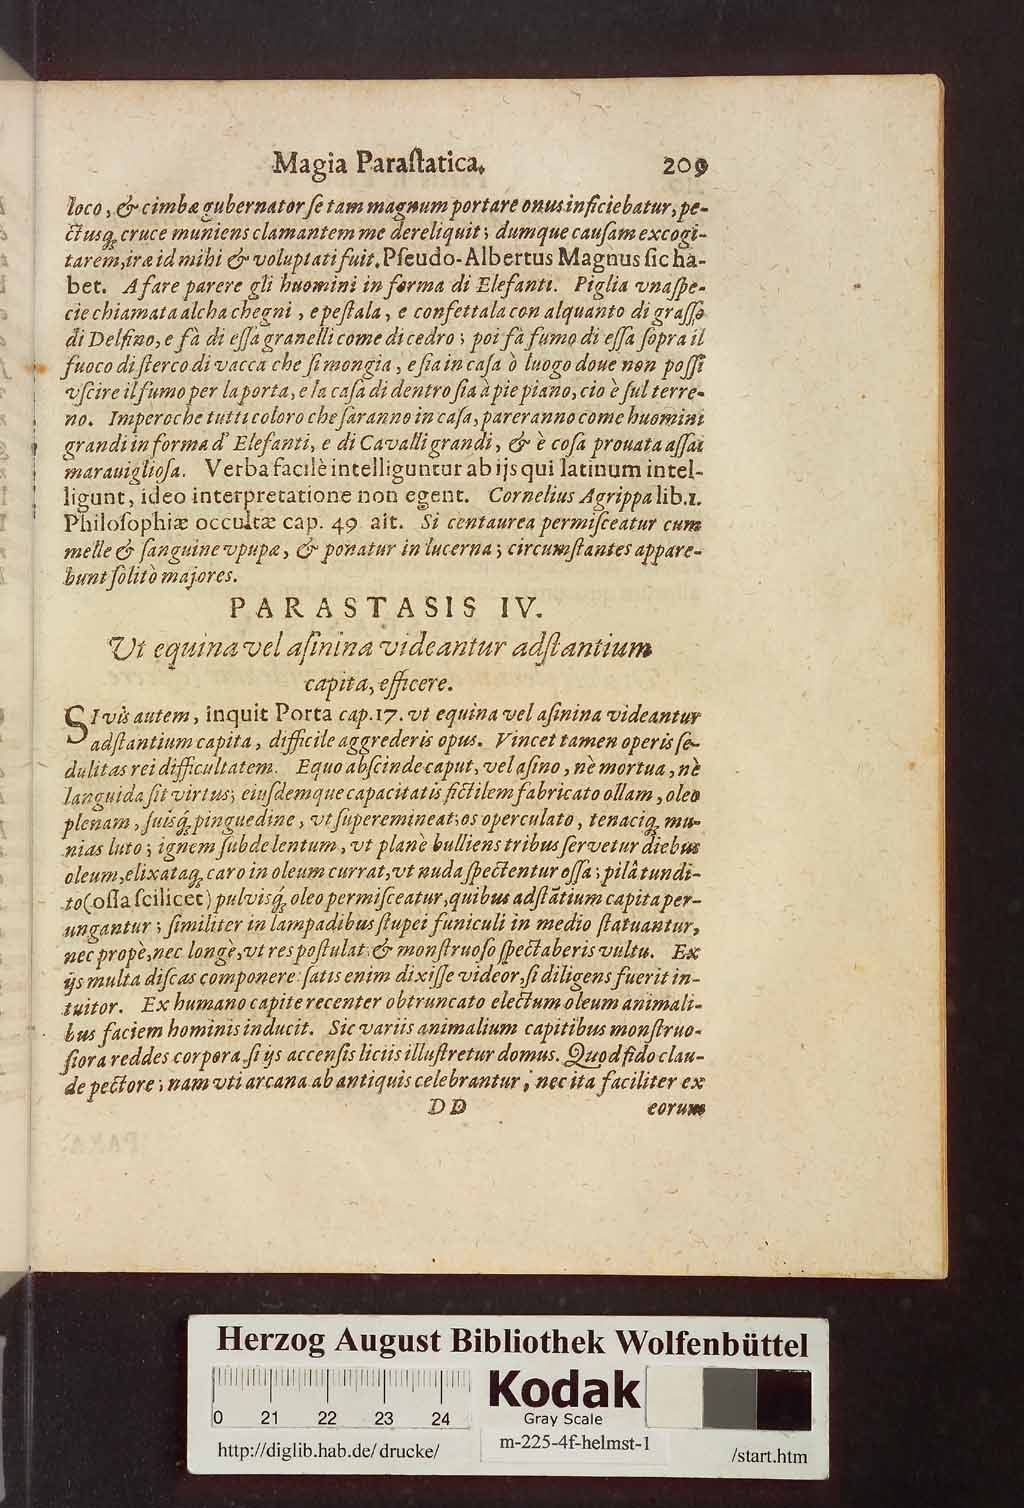 Magia Paraſtatica. 209
loco, & cimbæ gubernator ſe tam magnum portare onus inficiebatur, pe-
ctusq́; cruce muniens clamantem me dereliquit; dumque cauſam excogi-
tarem, iræ id mihi & voluptati fuit. Pſeudo-Albertus Magnus ſic ha-
bet. A fare parere gli huomini in forma di Elefanti. Piglia vna ſpe-
cie chiamata alcha chegni, e peſtala, e confettala con alquanto di graſſo
di Delfino, e fà di eſſa granelli come di cedro; poi fà fumo di eſſa ſopra il
fuoco di ſterco di vacca che ſi mongia, e ſia in caſa ò luogo doue non poſſi
vſcire il fumo per la porta, e la caſa di dentro ſia à pie piano, cio è ſul terre-
no. Imperoche tutti coloro che ſaranno in caſa, pareranno come huomini
grandi in forma d' Elefanti, e di Cavalli grandi, & è coſa prouata aſſai
marauiglioſa. Verba facilè intelliguntur ab ijs qui latinum intel-
ligunt, ideo interpretatione non egent. Cornelius Agrippa lib. 1.
Philoſophiæ occultæ cap. 49 ait. Si centaurea permiſceatur cum
melle & ſanguine vpupæ, & ponatur in lucerna; circumſtantes appare-
bunt ſolitò majores.
PARASTASIS IV.
Ut equina vel aſinina videantur adſtantium
capita, efficere.
SI vis autem, inquit Porta cap. 17. vt equina vel aſinina videantur
adſtantium capita, difficile aggrederis opus. Vincet tamen operis ſe-
dulitas rei difficultatem. Equo abſcinde caput, vel aſino, nè mortua, nè
languida ſit virtus; eiuſdemque capacitatis fictilem fabricato ollam, oleo
plenam, ſuisq́; pinguedine, vt ſuperemineat; os operculato, tenaciq; mu-
nias luto; ignem ſubde lentum, vt planè bulliens tribus ſervetur diebus
oleum, elixataq; caro in oleum currat, vt nuda ſpectentur oſſa; pilâ tundi-
to (oſſa ſcilicet) pulvisq́; oleo permiſceatur, quibus adſtãtium capita per-
ungantur; ſimiliter in lampadibus ſtupei funiculi in medio ſtatuantur,
nec propè, nec longè, vt res poſtulat; & monſtruoſo ſpectaberis vultu. Ex
ijs multa diſcas componere: ſatis enim dixiſſe videor, ſi diligens fuerit in-
tuitor. Ex humano capite recenter obtruncato electum oleum animali-
bus faciem hominis inducit. Sic variis animalium capitibus monſtruo-
ſiora reddes corpora, ſi ijs accenſis liciis illuſtretur domus. Quod fido clau-
de pectore; nam vti arcana ab antiquis celebrantur; nec ita faciliter ex
DD eorum
Herzog August Bibliothek Wolfenbüttel
0 21 22 23 24
Kodak
Gray Scale
http://diglib.hab.de/drucke/
m-225-4f-helmst-1
/start.htm